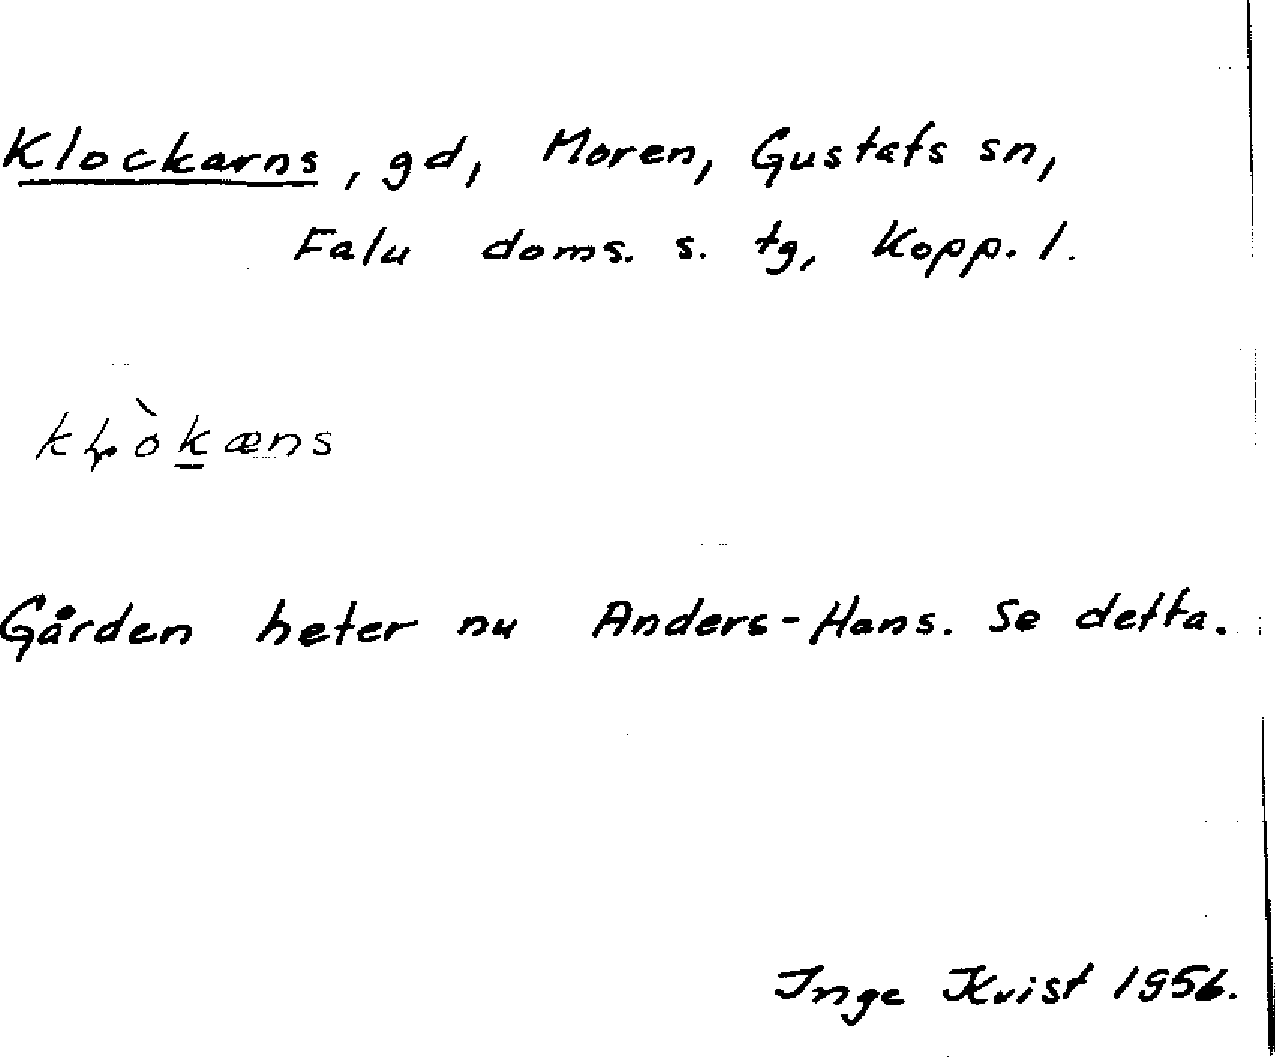 Klockarns, gd, Moren, Gustafs sn,
Falu doms. s. tg, Kopp. l.
kɭòkæns
Gården heter nu Anders-Hans. Se detta.
Inge Kvist 1956.